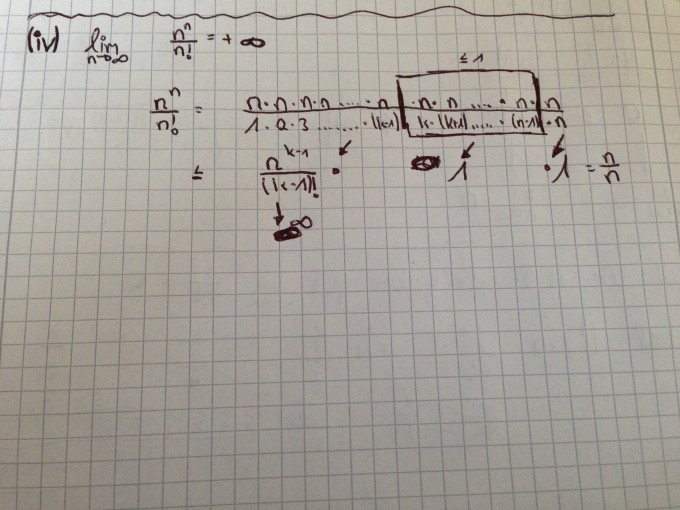 (iv) lim n→∞ n^n/n! = + ∞
≤ 1
n^n/n! = n·n·n·n.....·n ·n·n....·n· n / 1·2·3........·(k-1) k·(k+1).....·(n-1)·n
≤ n^(k-1)/(k-1)! · 1 ·1 = n/n
↓ ∞